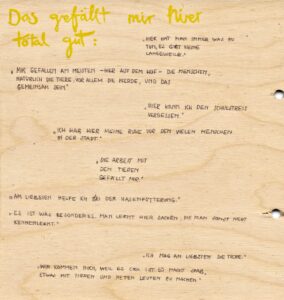 Das gefällt mir hier
total gut:
"HIER HAT MAN IMMER WAS ZU
TUN, ES GIBT KEINE
LANGEWEILE."
"MIR GEFALLEN AM MEISTEN - HIER AUF DEM HOF - DIE MENSCHEN,
NATÜRLICH DIE TIERE, VOR ALLEM DIE PFERDE, UND DAS
GEMEINSAM SEIN"
"HIER KANN ICH DEN SCHULSTRESS
VERGESSEN."
"ICH HAB HIER MEINE RUHE VOR DEN VIELEN MENSCHEN
IN DER STADT."
"DIE ARBEIT MIT
DEN TIEREN
GEFÄLLT MIR."
"AM LIEBSTEN HELFE ICH BEI DER HASENFÜTTERUNG."
"ES IST WAS BESONDERES. MAN LERNT HIER SACHEN, DIE MAN SONST NICHT
KENNENLERNT."
"ICH MAG AM LIEBSTEN DIE TIERE."
"WIR KOMMEN HOCH, WEIL ES COOL IST. ES MACHT SPAß,
ETWAS MIT TIEREN UND NETTEN LEUTEN ZU MACHEN."